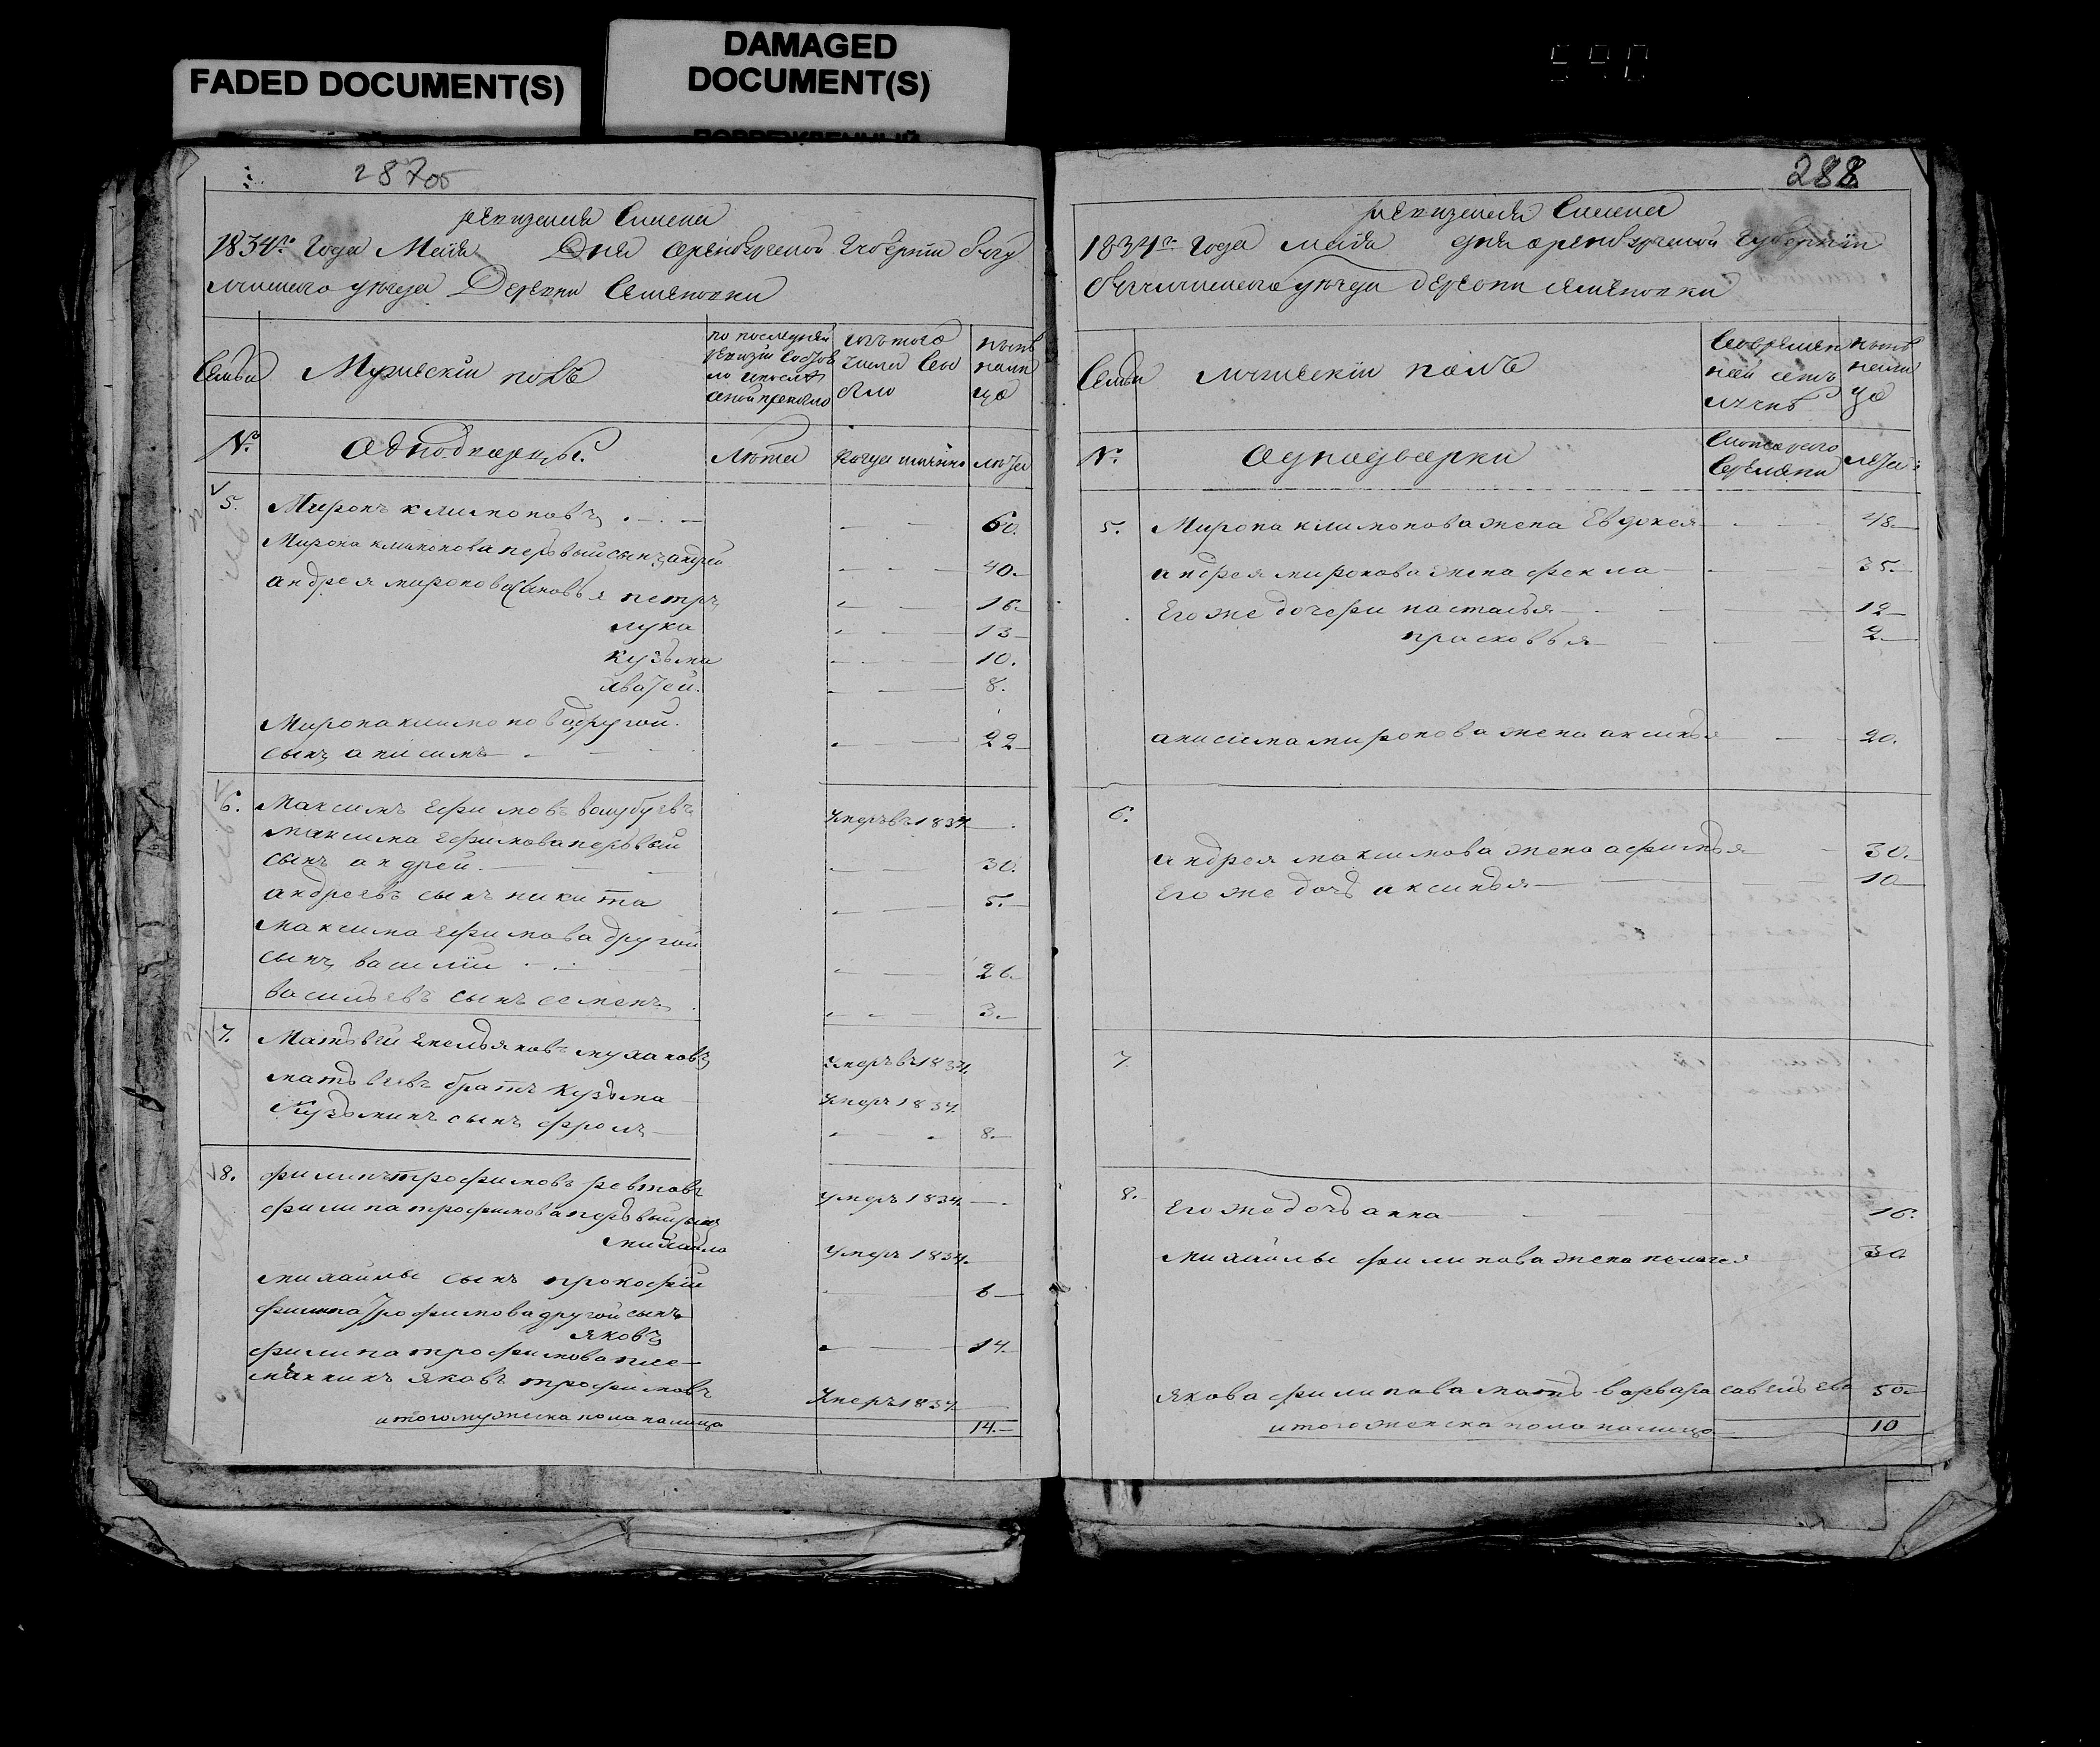 FADED DOCUMENT(S)
DAMAGED
DOCUMENT(S)
590
287 об
ревизская Сказка
1834го Года Маiя Дня оренбургской губернiи бугу
льминского уезда Деревни Семеновки
Семьи
Мужескiй полъ
по последней
ревизiи состоя
ло и после
оной прибыло
изъ того
числа выбыло
ныне
на ли
цо
№
Однодворцы.
Лета
Когда именно
лета
5. Миронъ климоновъ 60.
Мирона климонова первый сынъ андрей 40.
андрея миронова Сыновья петръ 16.
лука 13
кузьма 10.
8.
Мирона климонова другой
сынъ анисимъ 22
6. Максимъ ефимовъ умеръ въ 1834
максима ефимова первый
сынъ андрей. 30.
андреевъ сынъ никита 5.
максима ефимова другой
сынъ василiй 26.
васильевъ сынъ семенъ 3.
7. Матвей емельяновъ мухановъ умеръ въ 1834.
матвеевъ братъ кузьма умеръ 1834
Кузьминъ сынъ фролъ 8.
8. филипъ трофимовъ ревтовъ умеръ 1834
филипа трофимова первый сынъ
михайло умеръ 1834.
михайлы сынъ прокофiй 6
филипа трофимова другой сынъ
яковъ 14.
филипа трофимова пле-
мянникъ яковъ трофимовъ умеръ 1834
итого мужеска пола налицо 14.
288
ревизская Сказка
1834го Года маiя дня оренбургской губернiи
бугульминского уезда деревни семеновки
Семьи
полъ
ныне
нали
цо
№
однодворки
лета
5. Мирона климонова жена Евдокея 48
андрея миронова жена фекла 35.
Его же дочери настасья 12
прасковья 2
анисима миронова жена аксинья 20.
6.
андрея максимова жена афимья 30.
Его же дочь аксинья 10
7.
8. Его же дочь анна 16.
михайлы филипова жена пелагея 30
якова филипова мать варвара савельева 50
итого женска пола налицо 10